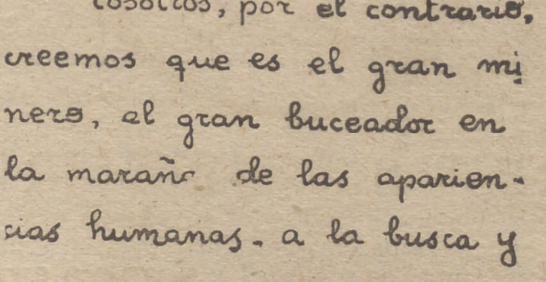 por el contrario,
creemos que es el gran mi
nero, el gran buceador en
la maraña de las aparien-
cias humanas. a la busca y